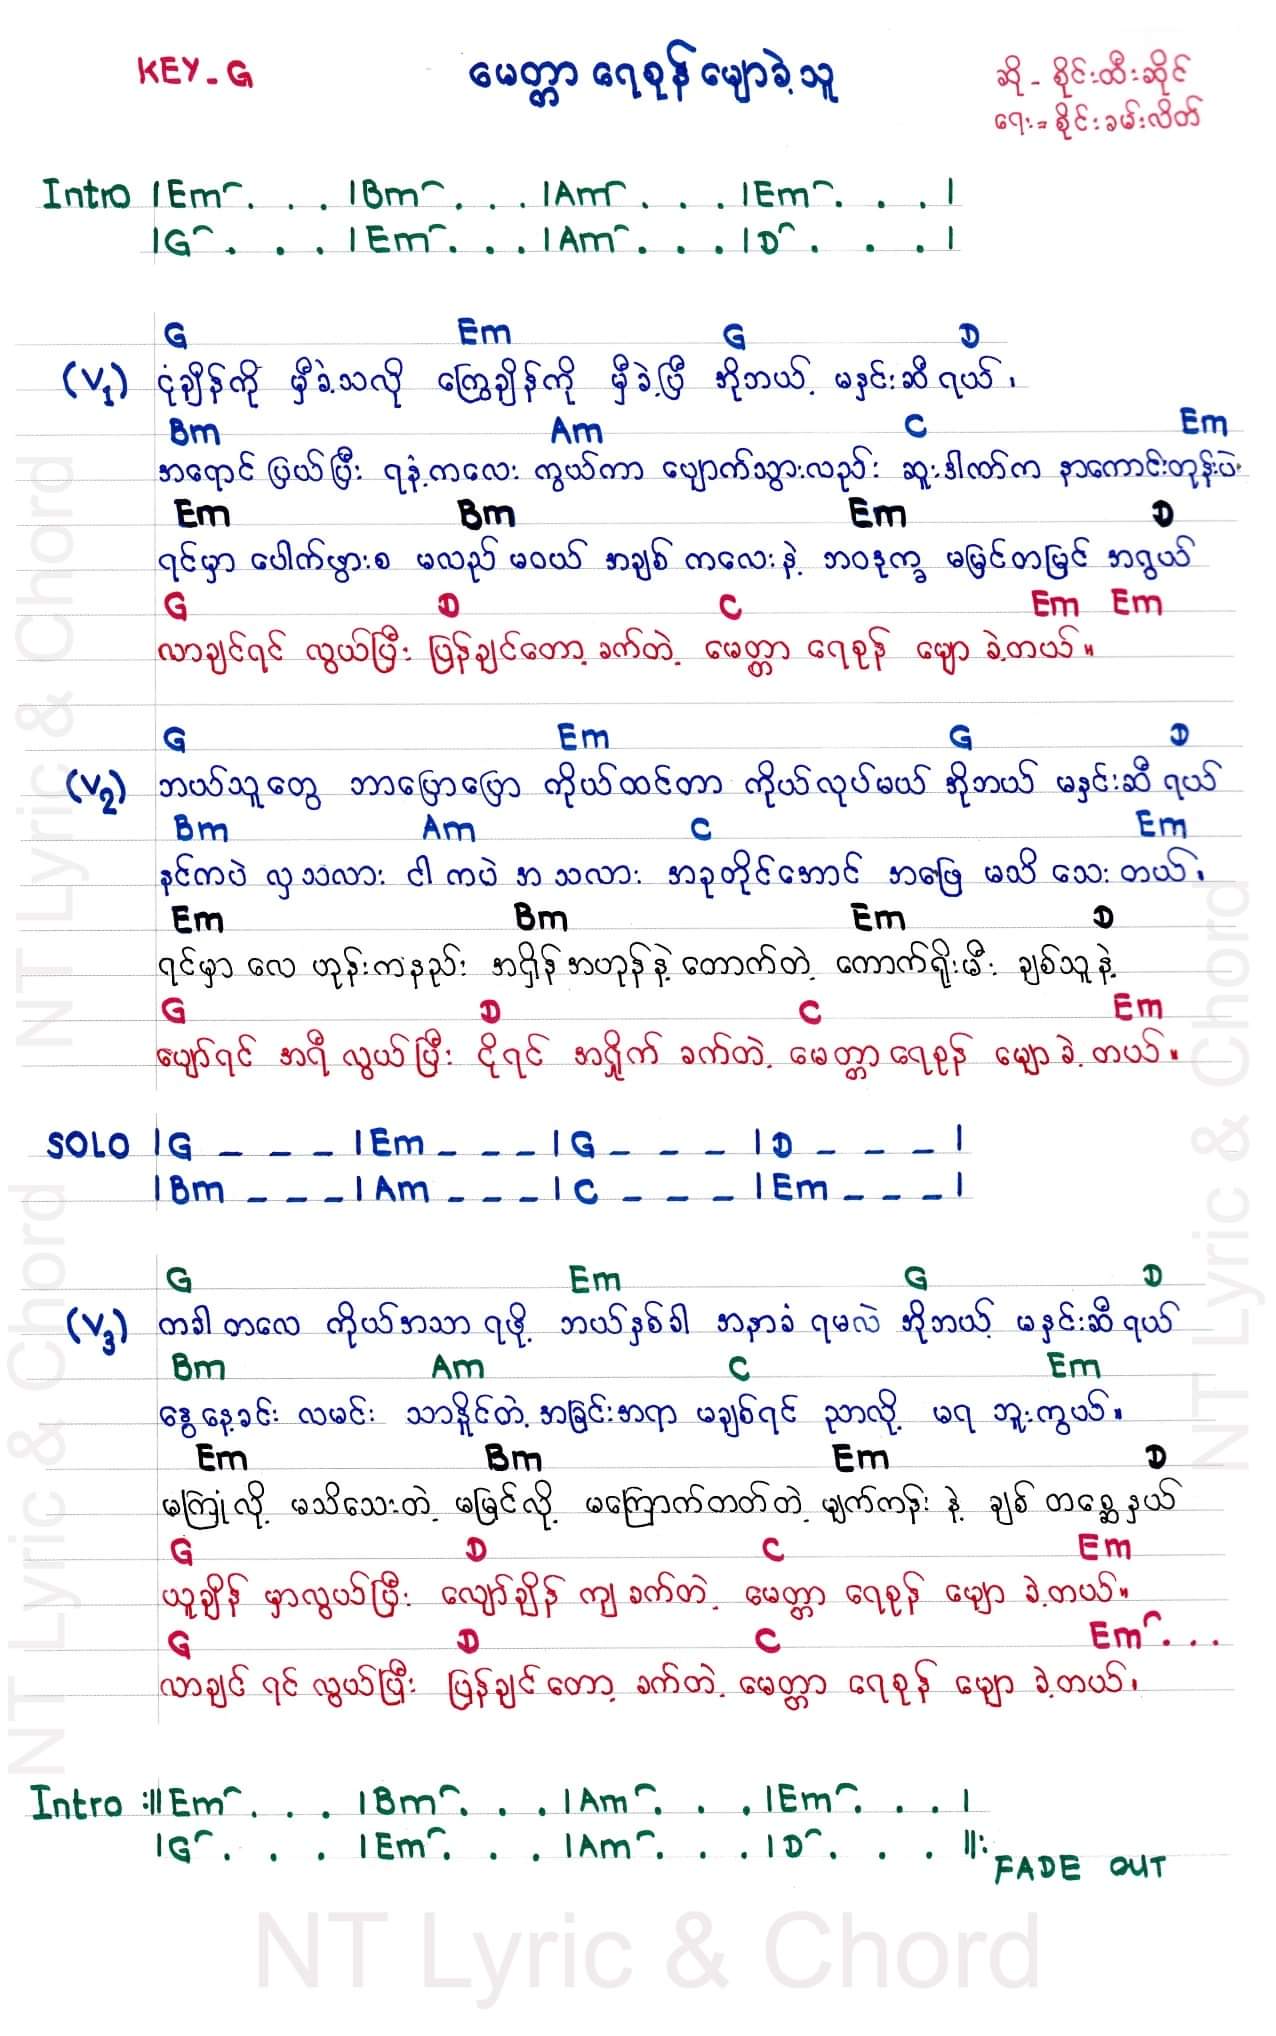 KEY - G
မေတ္တာ ရေစုန် မျောခဲ့သူ
ဆို - စိုင်းထီးဆိုင်
ရေး = စိုင်းခမ်းလိတ်
Intro | Em . . . | Bm . . . | Am . . . | Em . . . |
| G . . . | Em . . . | Am . . . | D . . . |
G Em G D
(V1) ငုံချိန်ကို မှီခဲ့သလို ကြွေချိန်ကို မှီခဲ့ပြီ အိုဘယ့် မနှင်းဆီ ရယ်၊
Bm Am C Em
အရောင် ပြယ်ပြီး ရနံ့ကလေး ကွယ်ကာ ပျောက်သွားလည်း ဆူးဒါဏ်က နာကောင်းတုန်းပဲ
Em Bm Em D
ရင်မှာ ပေါက်ဖွားစ မလည် မဝယ် အချစ် ကလေးနဲ့ ဘဝဒုက္ခ မမြင်တမြင် အရွယ်
G D C Em Em
လာချင်ရင် လွယ်ပြီး ပြန်ချင်တော့ ခက်တဲ့ မေတ္တာ ရေစုန် မျော ခဲ့တယ်။
G Em G D
(V2) ဘယ်သူတွေ ဘာပြောပြော ကိုယ်ထင်တာ ကိုယ်လုပ်မယ် အိုဘယ် မနှင်းဆီ ရယ်
Bm Am C Em
နင်ကပဲ လှသလား ငါ ကပဲ အ သလား အခုတိုင်အောင် အဖြေ မသိ သေး တယ်၊
Em Bm Em D
ရင်မှာ လေ ဟုန်းကနည်း အရှိန်အဟုန်နဲ့ တောက်တဲ့ ကောက်ရိုးမီး ချစ်သူနဲ့
G D C Em
ပျော်ရင် အရီ လွယ်ပြီး ငိုရင် အရှိုက် ခက်တဲ့ မေတ္တာ ရေစုန် မျော ခဲ့ တယ်။
SOLO | G _ _ _ | Em _ _ _ | G _ _ _ | D _ _ _ |
| Bm _ _ _ | Am _ _ _ | C _ _ _ | Em _ _ _ |
G Em G D
(V3) တခါ တလေ ကိုယ်အသာ ရဖို့ ဘယ်နှစ်ခါ အနာခံ ရမလဲ အိုဘယ့် မနှင်းဆီ ရယ်
Bm Am C Em
နွေနေ့ခင်း လမင်း သာနိုင်တဲ့ အခြင်းအရာ မချစ်ရင် ညာလို့ မရ ဘူးကွယ်။
Em Bm Em D
မကြုံလို့ မသိသေးတဲ့ မမြင်လို့ မကြောက်တတ်တဲ့ မျက်ကန်း နဲ့ ချစ် တစ္ဆေနယ်
G D C Em
ယူချိန် မှာလွယ်ပြီး လျော်ချိန် ကျ ခက်တဲ့ မေတ္တာ ရေစုန် မျော ခဲ့တယ်။
G D C Em . . .
လာချင် ရင် လွယ်ပြီး ပြန်ချင် တော့ ခက်တဲ့ မေတ္တာ ရေစုန် မျော ခဲ့တယ်၊
Intro :|| Em . . . | Bm . . . | Am . . . | Em . . . |
| G . . . | Em . . . | Am . . . | D . . . ||:
FADE OUT
NT Lyric & Chord
NT Lyric & Chord
NT Lyric & Chord
NT Lyric & Chord